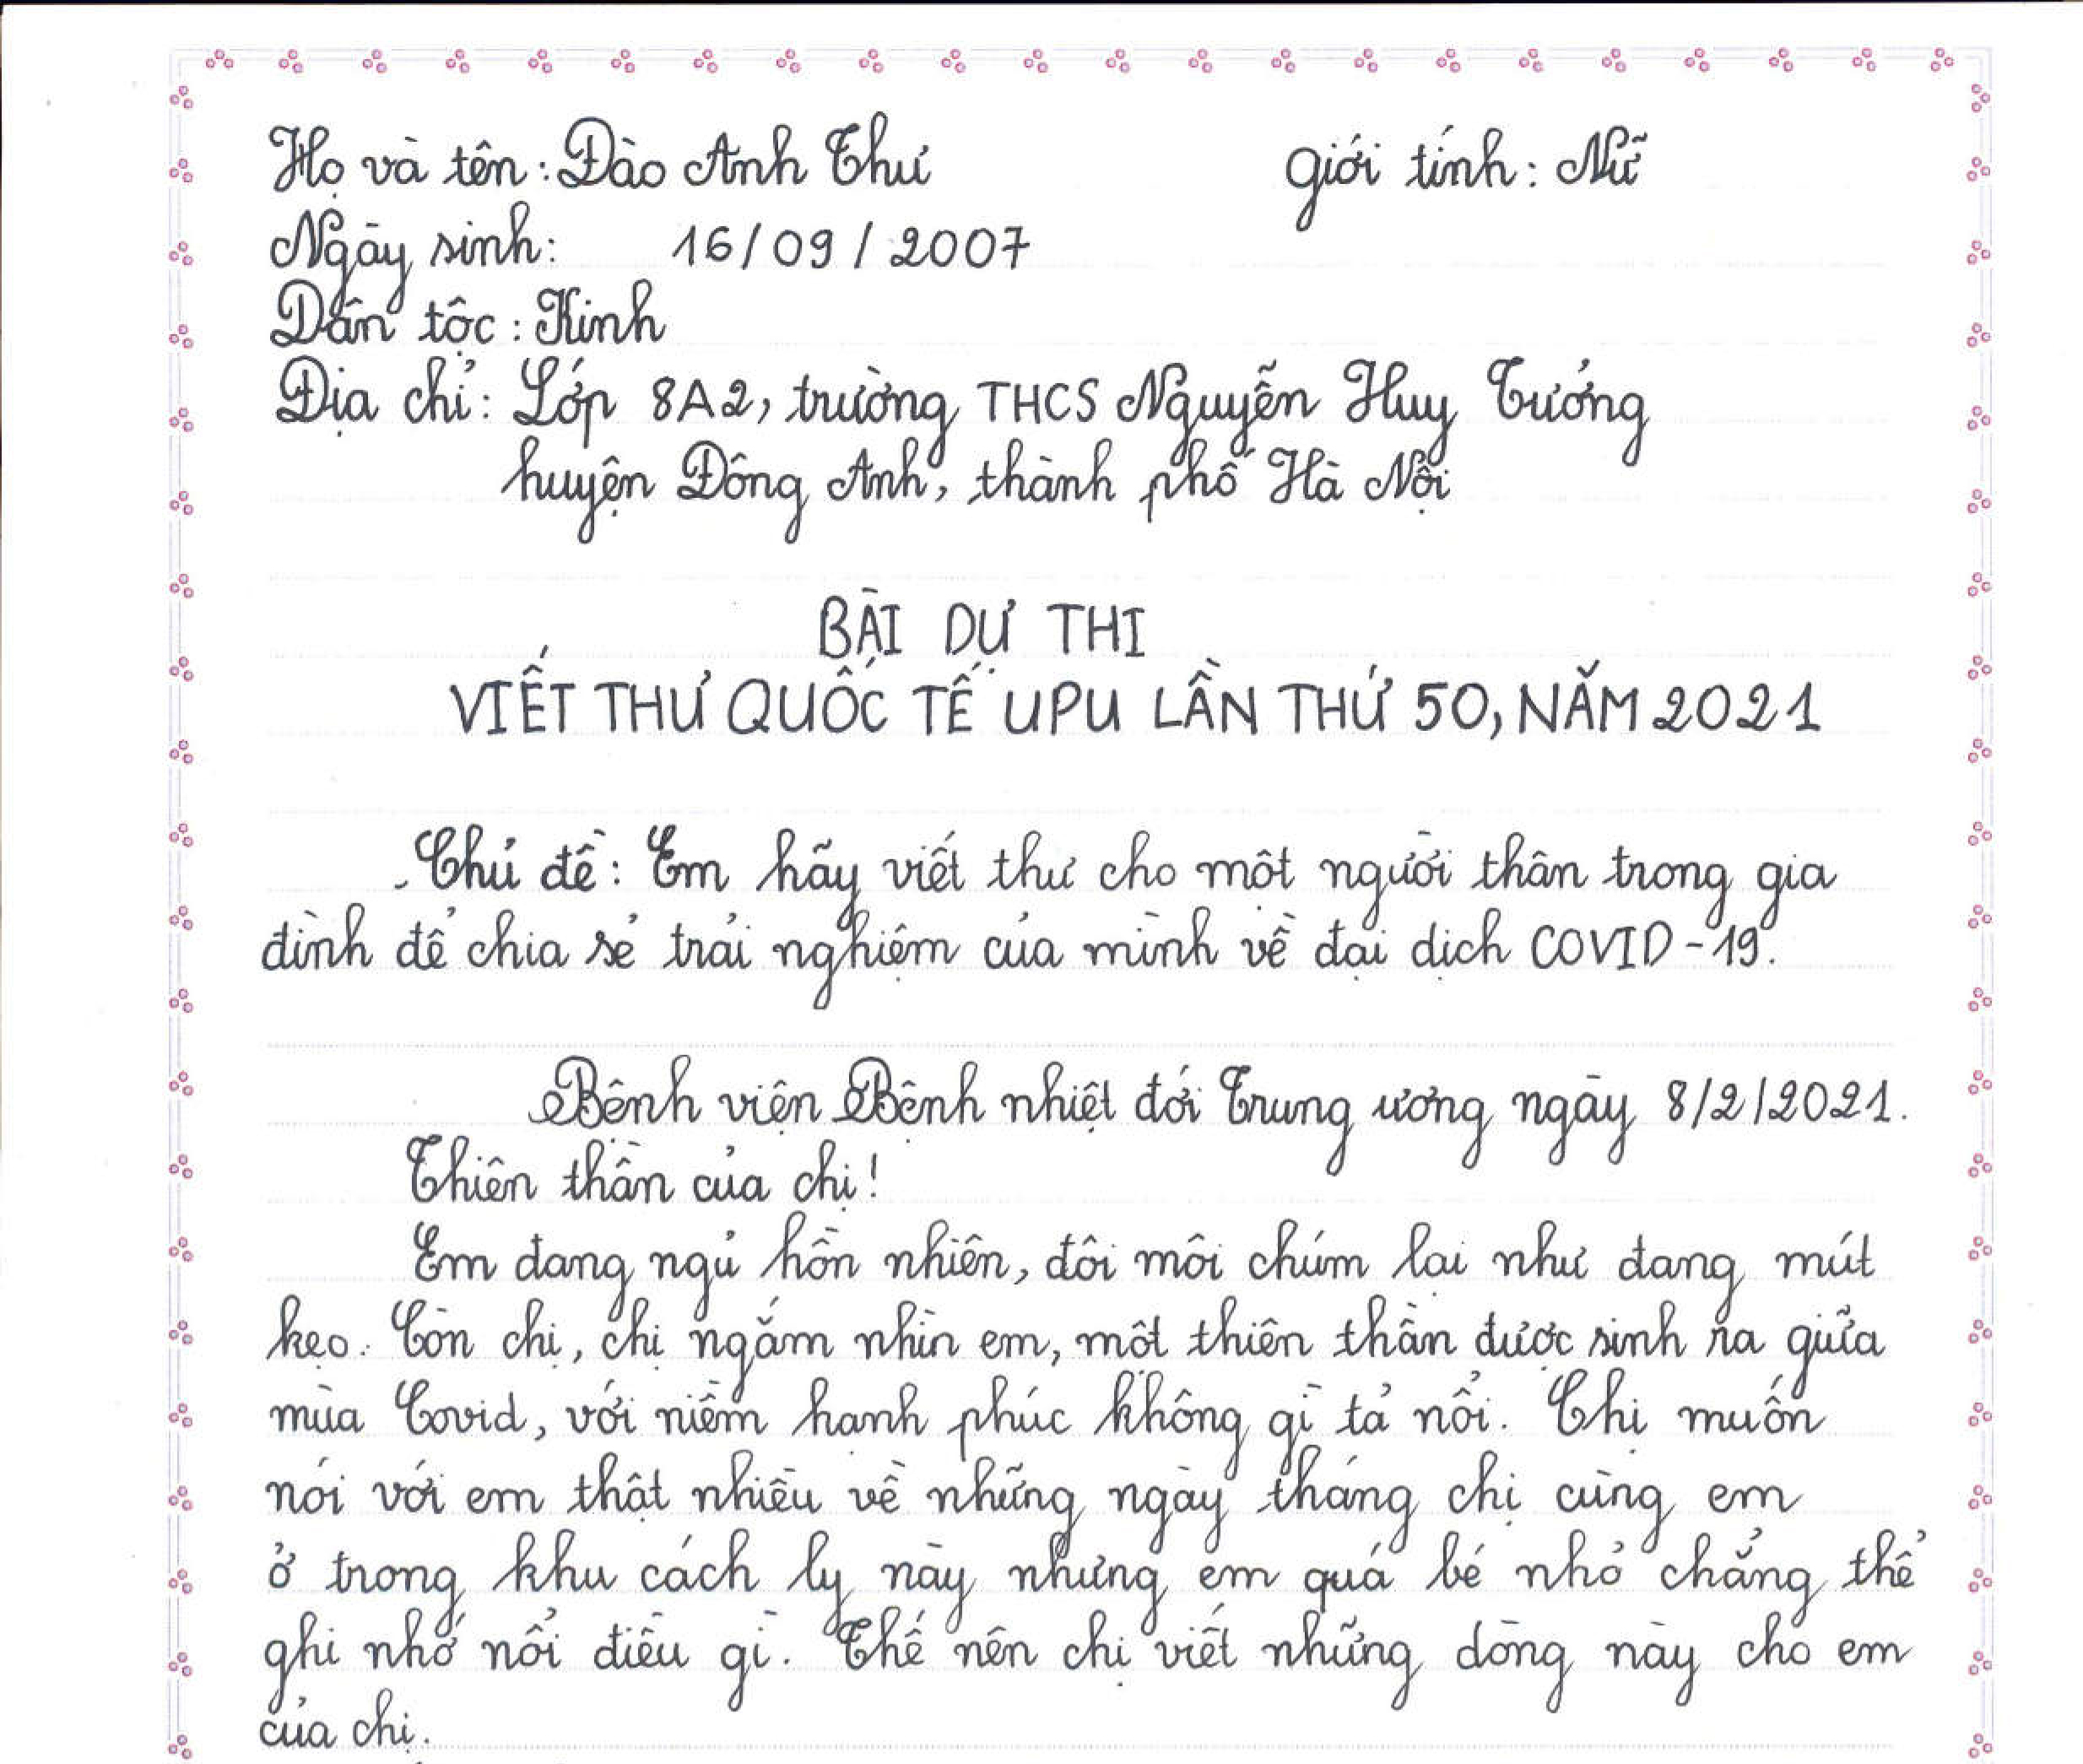 Họ và tên: Đào Anh Thư giới tính: Nữ
Ngày sinh: 16/09/2007
Dân tộc: Kinh
Địa chỉ: Lớp 8A2, trường THCS Nguyễn Huy Tưởng
huyện Đông Anh, thành phố Hà Nội
BÀI DỰ THI
VIẾT THƯ QUỐC TẾ UPU LẦN THỨ 50, NĂM 2021
Chủ đề: Em hãy viết thư cho một người thân trong gia
đình để chia sẻ trải nghiệm của mình về đại dịch COVID-19.
Bệnh viện Bệnh nhiệt đới Trung ương ngày 8/2/2021.
Thiên thần của chị!
Em đang ngủ hồn nhiên, đôi môi chúm lại như đang mút
kẹo. Còn chị, chị ngắm nhìn em, một thiên thần được sinh ra giữa
mùa Covid, với niềm hạnh phúc không gì tả nổi. Chị muốn
nói với em thật nhiều về những ngày tháng chị cùng em
ở trong khu cách ly này nhưng em quá bé nhỏ chẳng thể
ghi nhớ nổi điều gì. Thế nên chị viết những dòng này cho em
của chị.